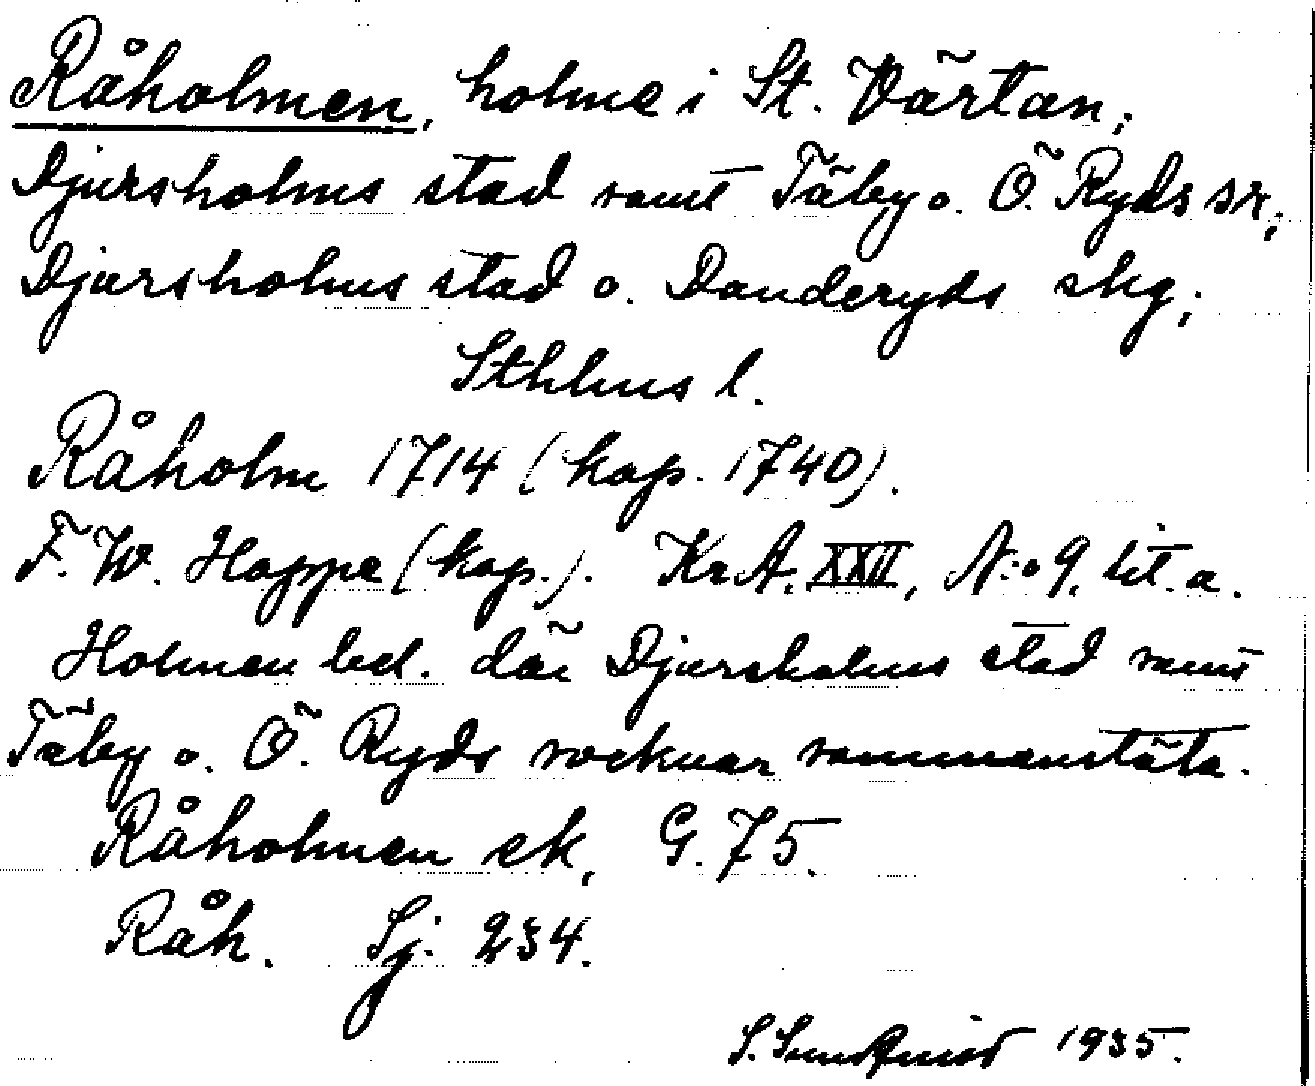 Råholmen, holme i St. Värtan;
Djursholms stad samt Täby o. Ö. Ryds sr;
Djursholms stad o. Danderyds skg;
Sthlms l.
Råholm 1714 (kop. 1740).
F. W. Hoppe (kop.). Kr A. XXII, N:o 9. lit. a.
Holmen bel. där Djursholms stad samt
Täby o. Ö. Ryds socknar sammanstöta.
Råholmen ek, G. 75.
Råh. Sj. 234.
S. Sundqvist 1935.